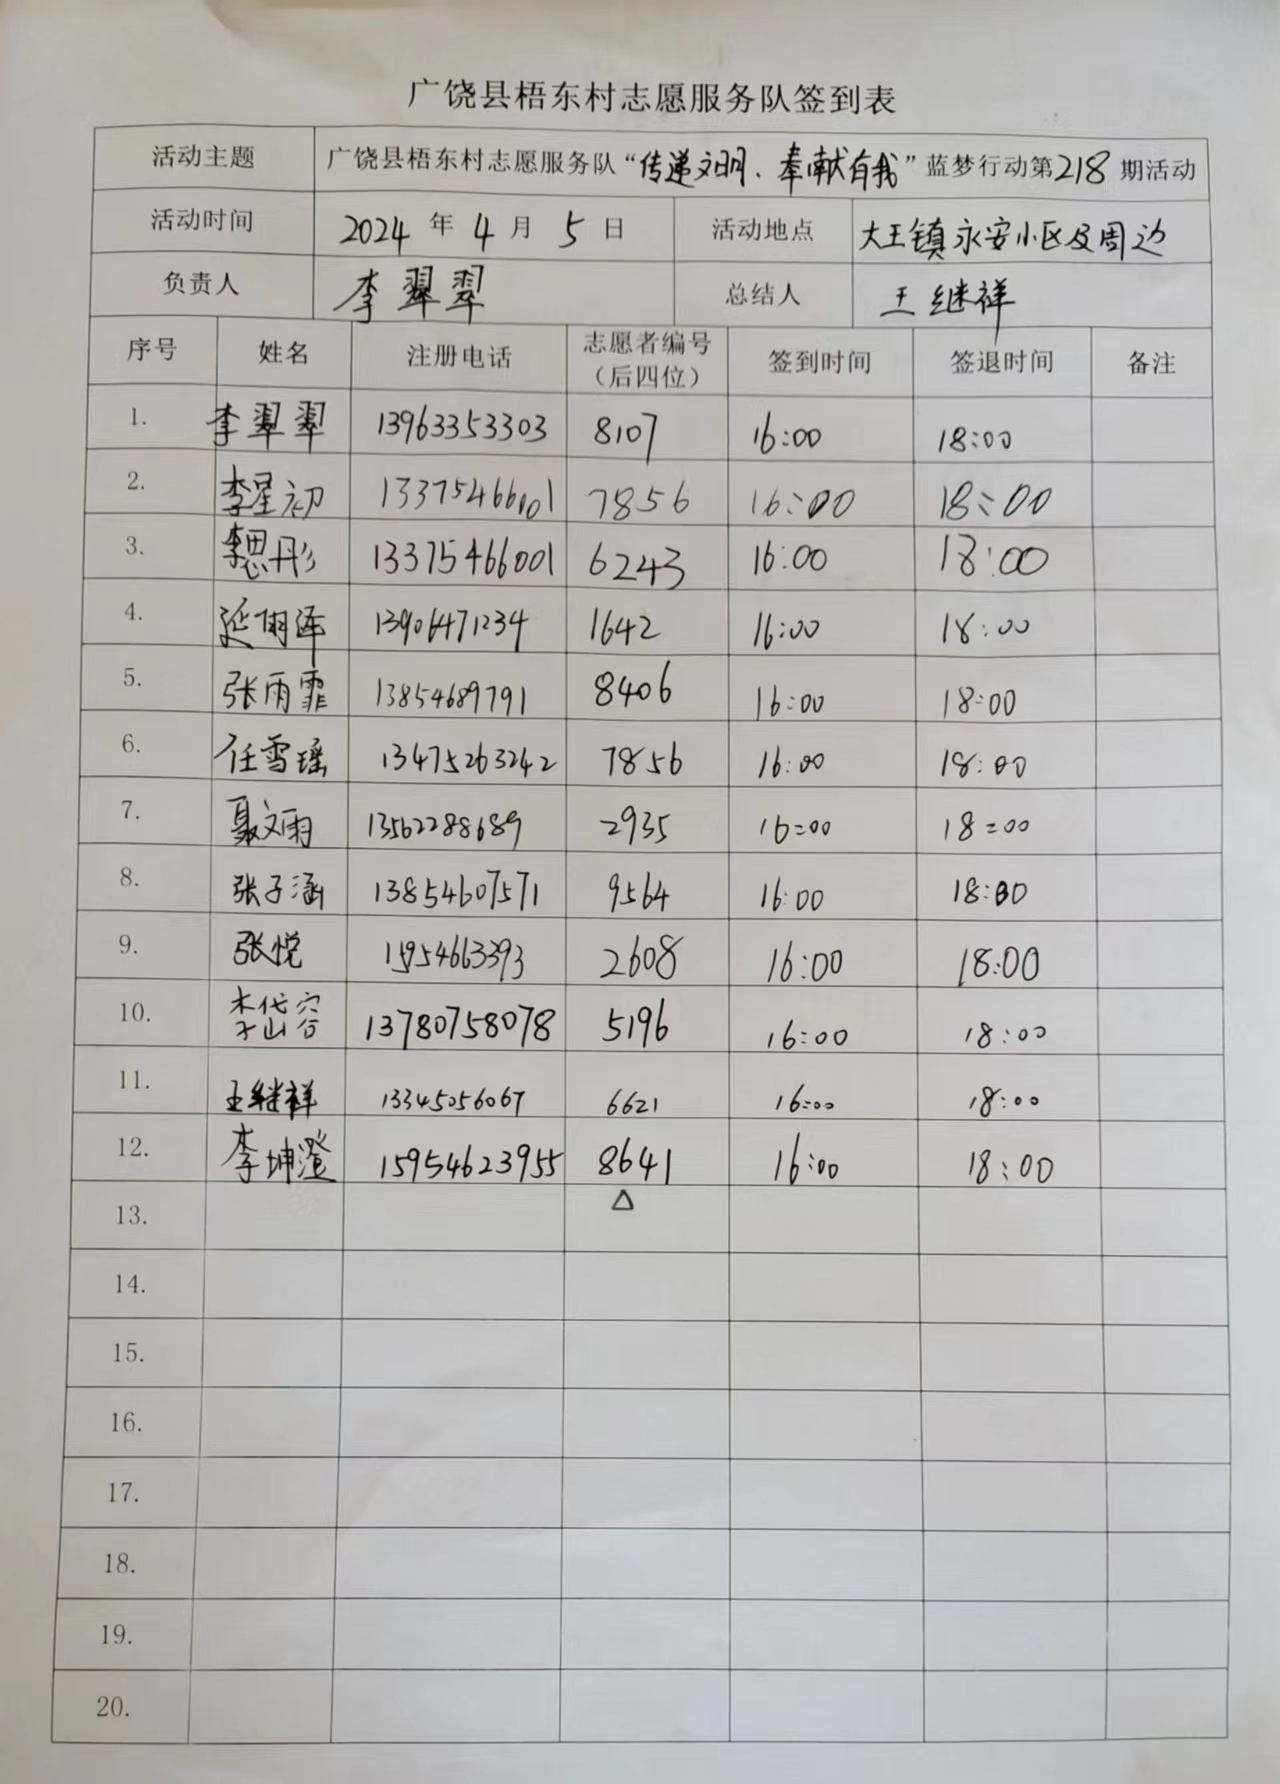 广饶县梧东村志愿服务队签到表
活动主题 广饶县梧东村志愿服务队“传递文明、奉献有我”蓝梦行动第218期活动
活动时间 2024年4月5日 活动地点 大王镇永安小区及周边
负责人 李翠翠 总结人 王继祥
序号 姓名 注册电话 志愿者编号（后四位） 签到时间 签退时间 备注
1. 李翠翠 13963353303 8107 16:00 18:00
2. 李星初 13375466001 7856 16:00 18:00
3. 李思彤 13375466001 6243 16:00 18:00
4. 延雨泽 13906471234 1642 16:00 18:00
5. 张雨霏 13854689791 8406 16:00 18:00
6. 任雪瑶 13475263242 7856 16:00 18:00
7. 聂文雨 13562288689 2935 16:00 18:00
8. 张子涵 13854607571 9564 16:00 18:00
9. 张悦 15954663393 2608 16:00 18:00
10. 李岱容 13780758078 5196 16:00 18:00
11. 王继祥 13345056067 6621 16:00 18:00
12. 李坤澄 15954623955 8641 16:00 18:00
13.
14.
15.
16.
17.
18.
19.
20.